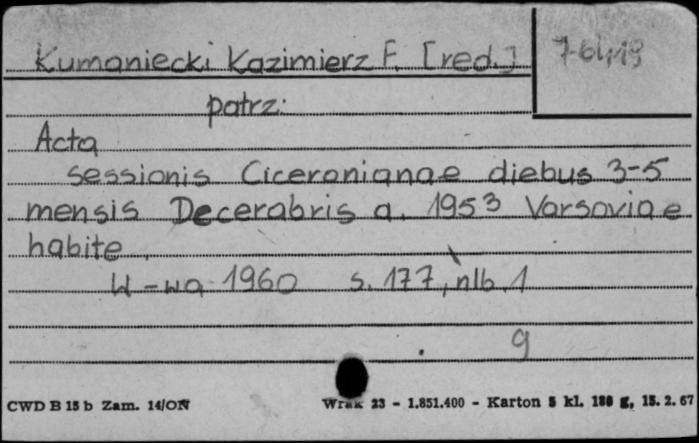 Kumaniecki Kazimierz F. [red.]
patrz:
Acta
sessionis Ciceronianae diebus 3-5
mensis Decerabris a. 1953 Varsoviae
habite.
W-wa 1960 s. 177, nlb. 1
9
CWD B 15 b Zam. 14/ON Wrak 23 - 1.851.400 - Karton 5 kl. 180 g, 15. 2. 67